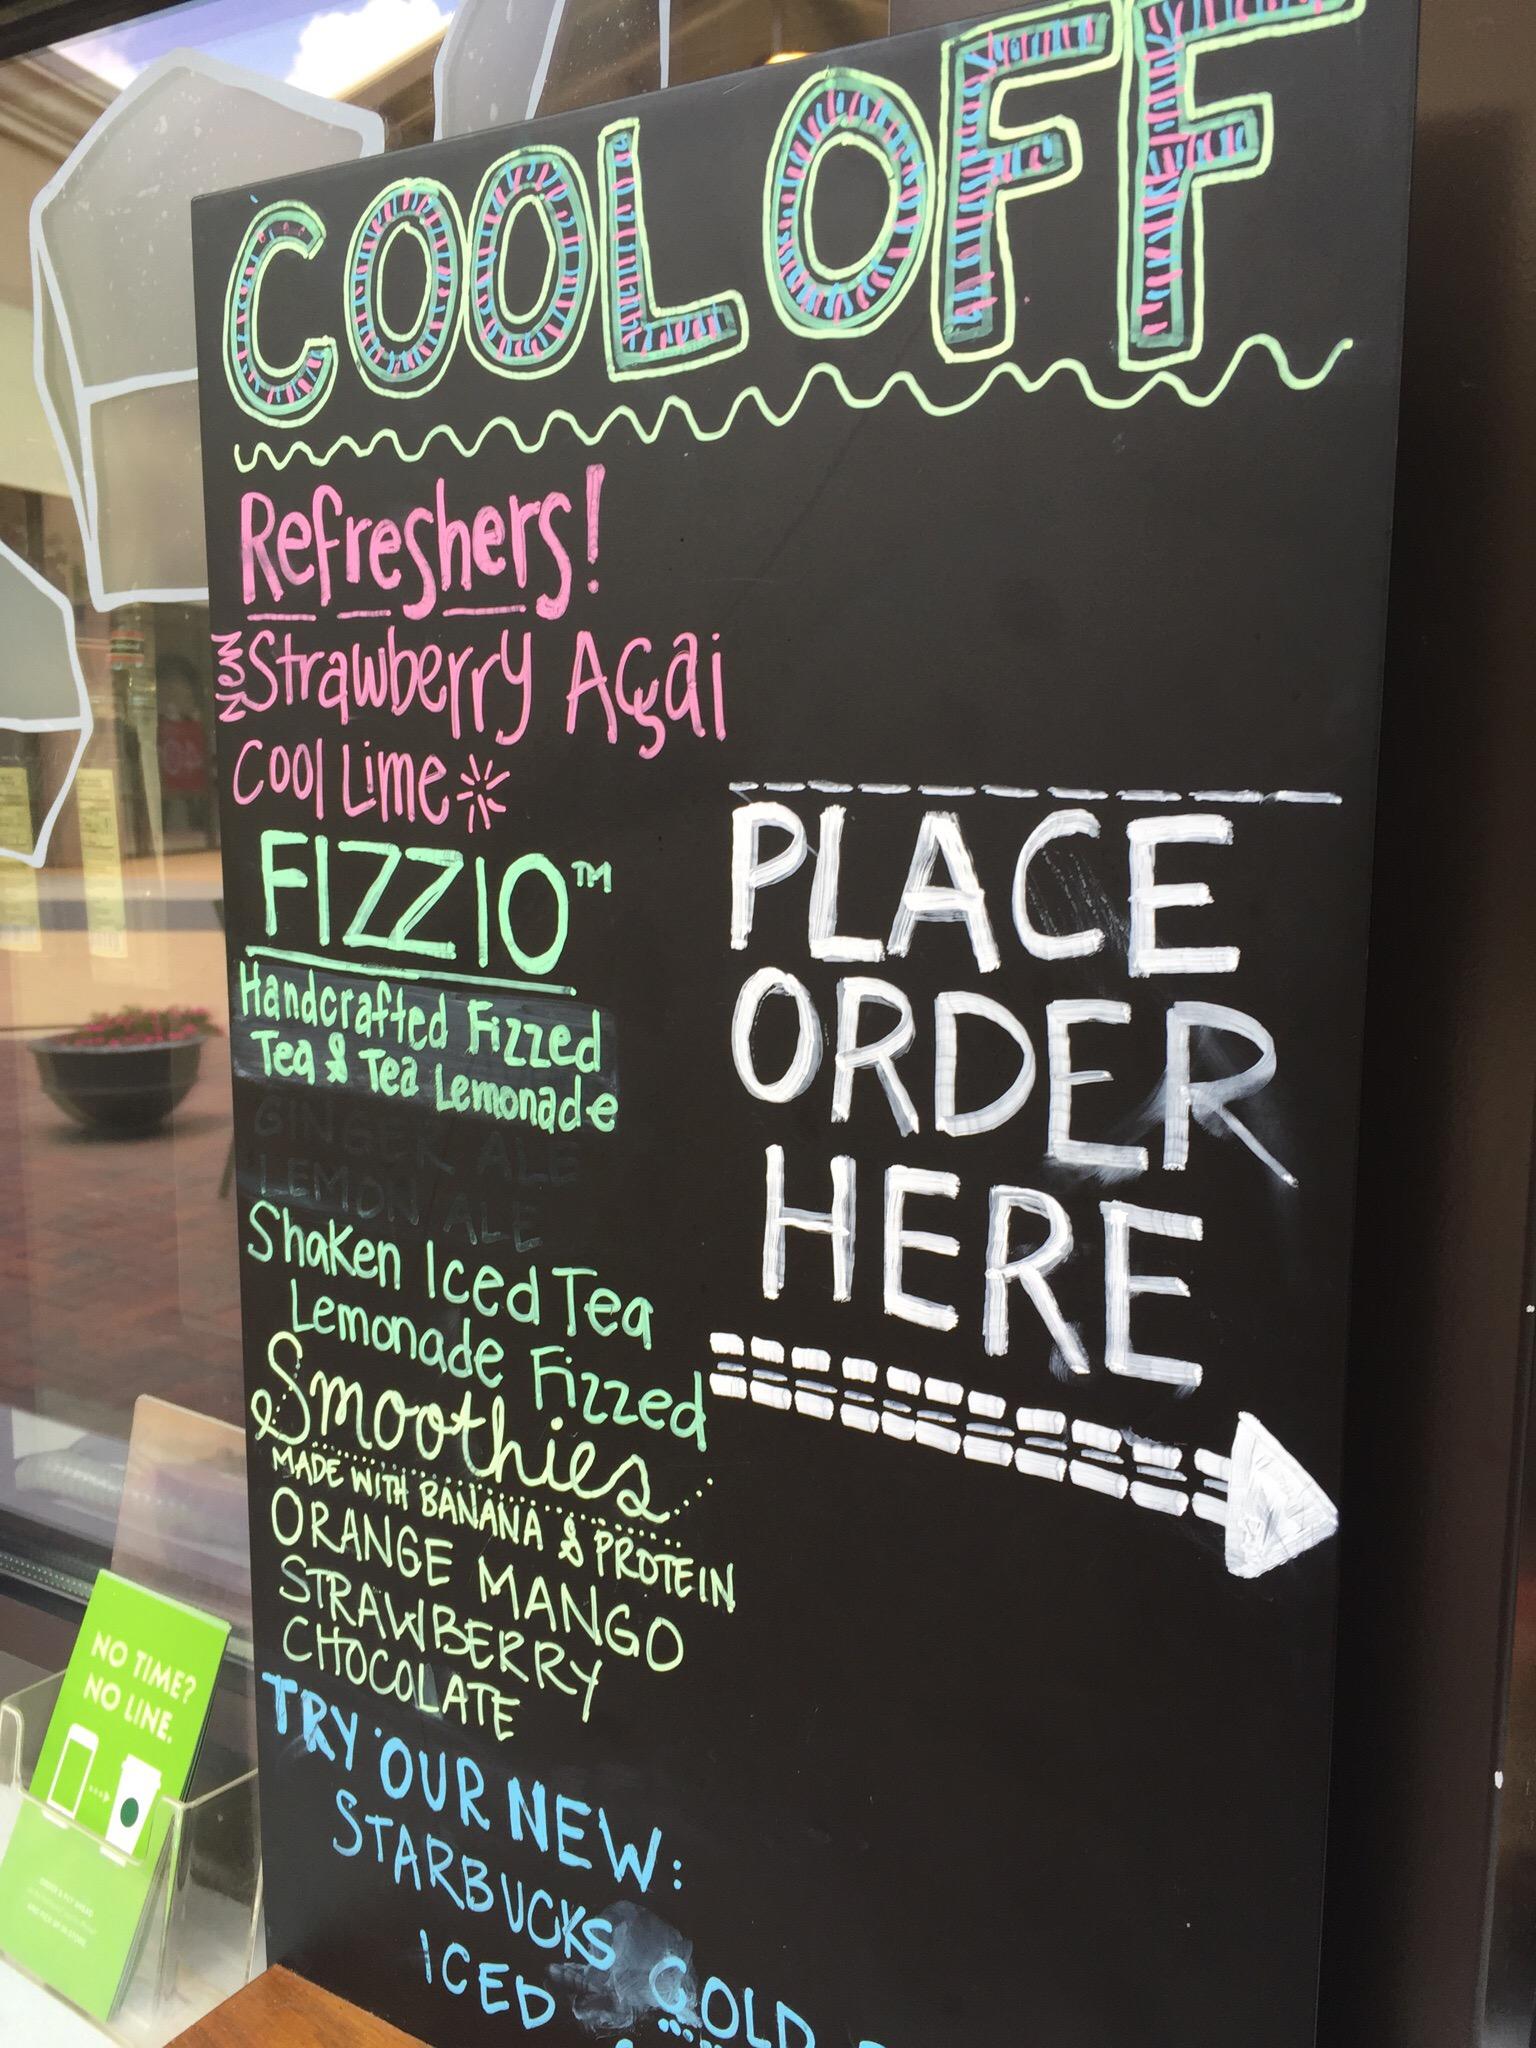 COOL OFF
Refreshers!
NEW
Strawberry Açai
Cool Lime
FIZZIO™
Handcrafted Fizzed
Tea & Tea Lemonade
GINGER ALE
LEMON ALE
Shaken Iced Tea
Lemonade Fizzed
Smoothies
MADE WITH BANANA & PROTEIN
ORANGE MANGO
STRAWBERRY
CHOCOLATE
TRY OUR NEW:
STARBUCKS COLD
ICED
PLACE
ORDER
HERE
NO TIME?
NO LINE.
ORDER & PAY AHEAD
AND PICK UP IN STORE